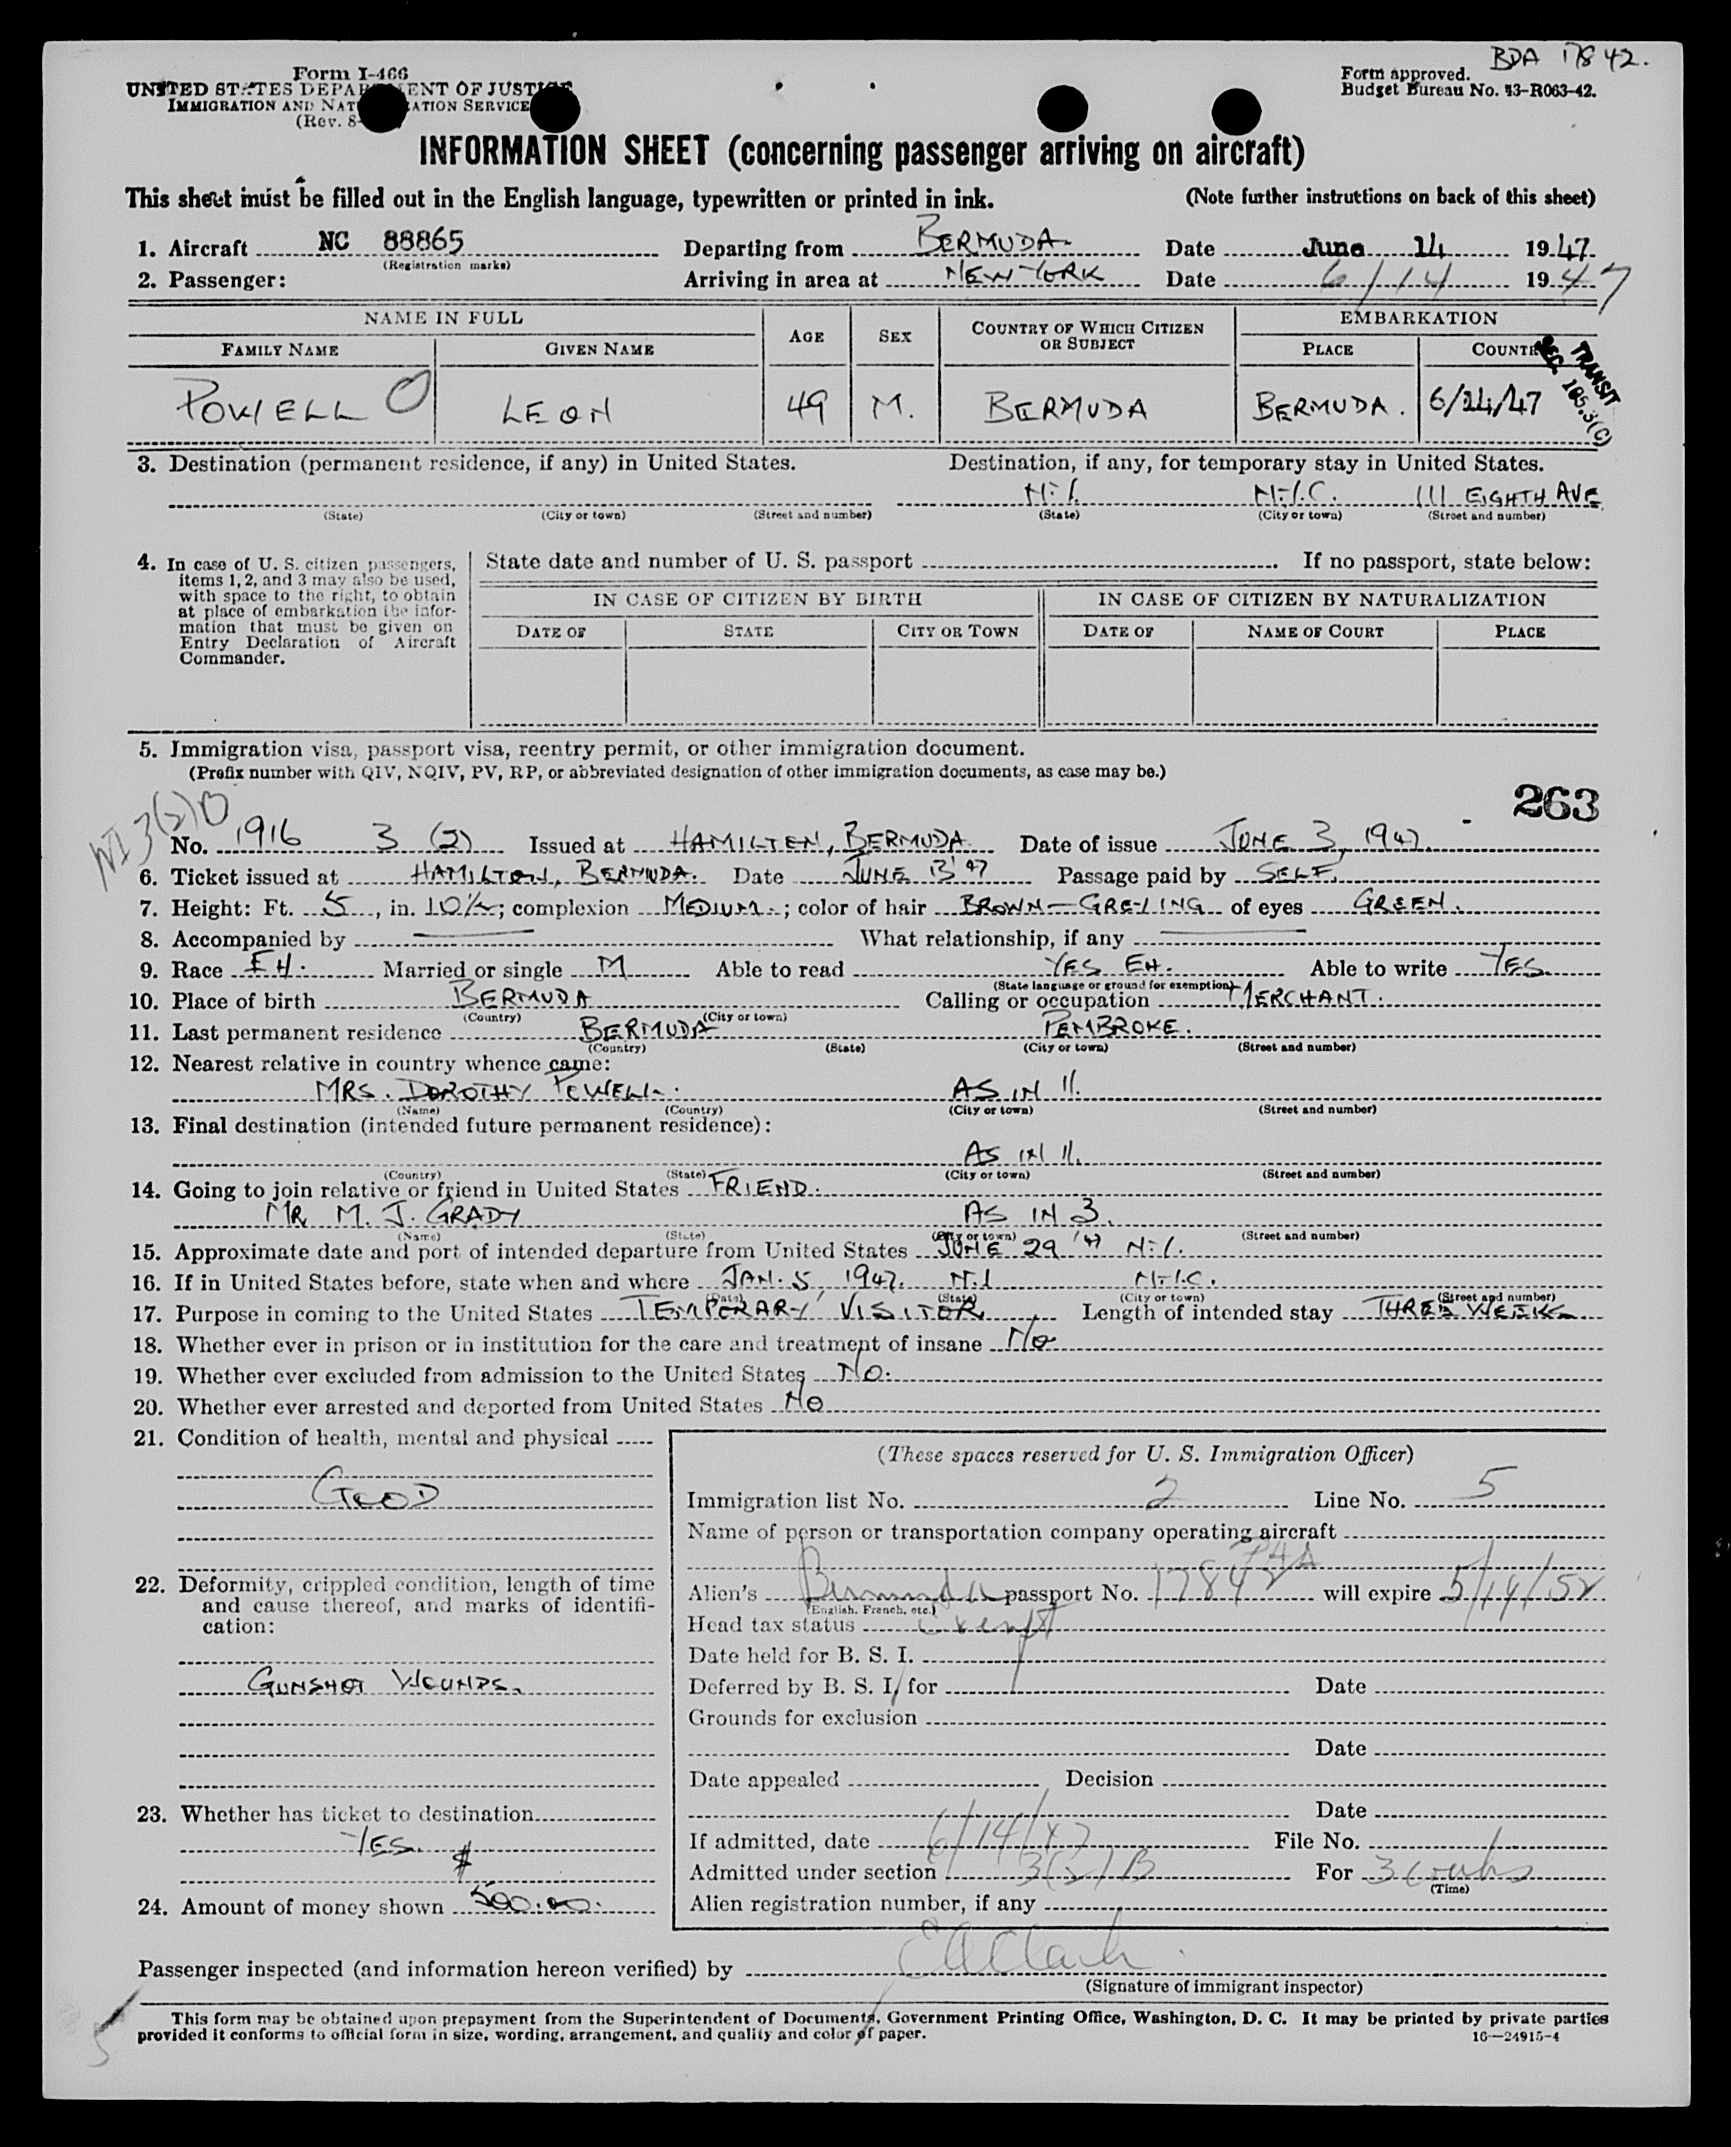 BDA 17842.
Form I-466
UNITED STATES DEPARTMENT OF JUSTICE
IMMIGRATION AND NATURALIZATION SERVICE
(Rev. 8-
Form approved.
Budget Bureau No. 43-R063-42.
INFORMATION SHEET (concerning passenger arriving on aircraft)
This sheet must be filled out in the English language, typewritten or printed in ink. (Note further instructions on back of this sheet)
1. Aircraft NC 88865 Departing from BERMUDA Date June 14 1947
(Registration marks)
2. Passenger: Arriving in area at NEW YORK Date 6/14 1947
NAME IN FULL AGE SEX COUNTRY OF WHICH CITIZEN OR SUBJECT EMBARKATION
FAMILY NAME GIVEN NAME PLACE COUNTRY
TRANSIT
SEC. 185.3(C)
POWELL LEON 49 M. BERMUDA BERMUDA. 6/24/47
3. Destination (permanent residence, if any) in United States. Destination, if any, for temporary stay in United States.
N.Y. N.Y.C. 111 EIGHTH AVE
(State) (City or town) (Street and number) (State) (City or town) (Street and number)
4. In case of U. S. citizen passengers, items 1, 2, and 3 may also be used, with space to the right, to obtain at place of embarkation the information that must be given on Entry Declaration of Aircraft Commander.
State date and number of U. S. passport If no passport, state below:
IN CASE OF CITIZEN BY BIRTH IN CASE OF CITIZEN BY NATURALIZATION
DATE OF STATE CITY OR TOWN DATE OF NAME OF COURT PLACE
5. Immigration visa, passport visa, reentry permit, or other immigration document.
(Prefix number with QIV, NQIV, PV, RP, or abbreviated designation of other immigration documents, as case may be.)
263
3(2)B
No. 1916 3 (2) Issued at HAMILTON, BERMUDA Date of issue JUNE 3, 1947.
6. Ticket issued at HAMILTON, BERMUDA. Date JUNE 13 '47 Passage paid by SELF.
7. Height: Ft. 5, in. 10½; complexion MEDIUM.; color of hair BROWN-GREYING of eyes GREEN.
8. Accompanied by What relationship, if any
9. Race EH. Married or single M Able to read YES EH. Able to write YES.
(State language or ground for exemption)
10. Place of birth BERMUDA Calling or occupation MERCHANT.
(Country) (City or town)
11. Last permanent residence BERMUDA PEMBROKE.
(Country) (State) (City or town) (Street and number)
12. Nearest relative in country whence came:
MRS. DOROTHY POWELL. AS IN 11.
(Name) (Country) (City or town) (Street and number)
13. Final destination (intended future permanent residence):
AS IN 11.
(Country) (State) (City or town) (Street and number)
14. Going to join relative or friend in United States FRIEND.
MR M. J. GRADY AS IN 3.
(Name) (State) (City or town) (Street and number)
15. Approximate date and port of intended departure from United States JUNE 29 '47 N.Y.
16. If in United States before, state when and where JAN. 5, 1947. N.Y N.Y.C.
(Date) (State) (City or town) (Street and number)
17. Purpose in coming to the United States TEMPORARY VISITOR Length of intended stay THREE WEEKS.
18. Whether ever in prison or in institution for the care and treatment of insane No
19. Whether ever excluded from admission to the United States NO.
20. Whether ever arrested and deported from United States NO
21. Condition of health, mental and physical
GOOD
22. Deformity, crippled condition, length of time and cause thereof, and marks of identification:
GUNSHOT WOUNDS.
23. Whether has ticket to destination
YES.
24. Amount of money shown $ 500.00.
(These spaces reserved for U. S. Immigration Officer)
Immigration list No. 2 Line No. 5
Name of person or transportation company operating aircraft
PAA
Alien's Bermuda passport No. 17842 will expire 5/14/52
(English, French, etc.)
Head tax status Exempt
Date held for B. S. I.
Deferred by B. S. I. for Date
Grounds for exclusion
Date
Date appealed Decision
Date
If admitted, date 6/14/47 File No.
Admitted under section 3(2)B For 3
(Time)
Alien registration number, if any
Passenger inspected (and information hereon verified) by EAClark
(Signature of immigrant inspector)
This form may be obtained upon prepayment from the Superintendent of Documents, Government Printing Office, Washington, D. C. It may be printed by private parties
provided it conforms to official form in size, wording, arrangement, and quality and color of paper. 16—24915-4
5